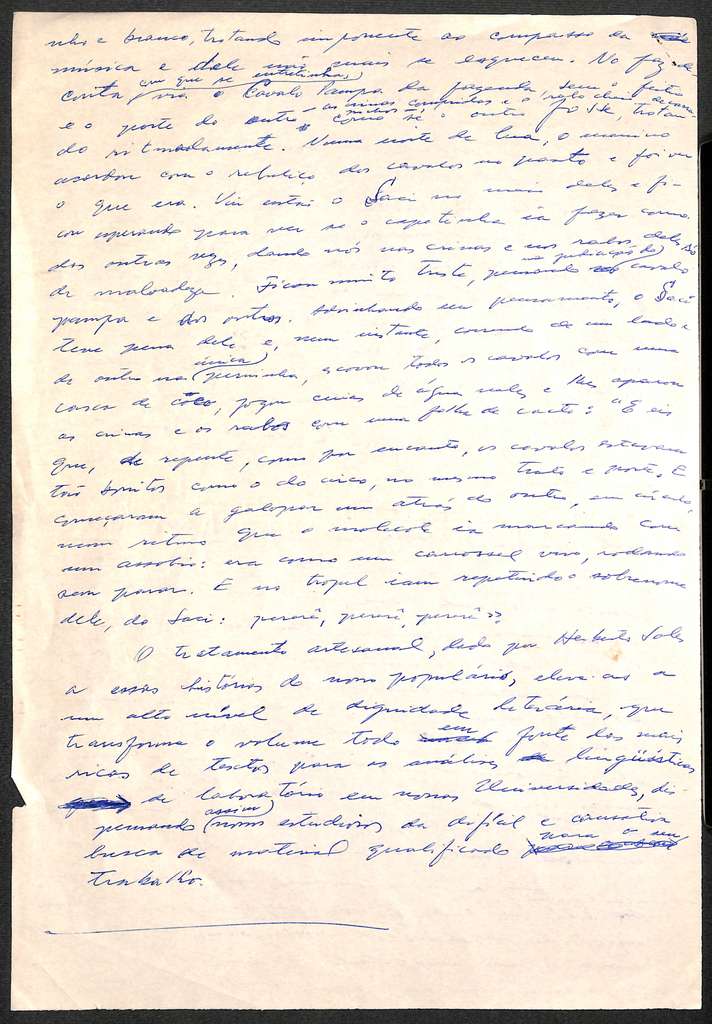 nho e branco, trotando imponente ao compasso da
música e dele não mais se esqueceu. No faz-de-
conta em que se entretinha, via o Cavalo Pampa da fazenda, sem o feitio
e o porte do outro as crinas compridas e o
como se o outro fosse, trotan-
do ritmadamente. Numa noite de lua, o menino
acordou com o rebuliço dos cavalos no pasto e foi ver
o que era. Viu então o Saci no meio deles e fi-
cou esperando para ver se o capetinha ia fazer como
das outras vezes, dando nós nas crinas e nos rabos deles só
de malvadeza. Ficou muito triste, pensando na judiação do cavalo
pampa e dos outros. Adivinhando seu pensamento, o Saci
teve pena dele e, num instante, correndo de um lado e
de outro na única perninha, escovou todos os cavalos com uma
casca de côco, jogou cuias de água neles e lhes aparou
as crinas e os rabos com uma folha de cacto: "E eis
que, de repente, como por encanto, os cavalos estavam
tão bonitos como o do circo, no mesmo trato e porte. E
começaram a galopar um atrás do outro, em círculo,
num ritmo que o molecote ia marcando com
um assobio: era como um carrossel vivo, rodando
sem parar. E no tropel iam repetindo o sobrenome
dele, do Saci: pererê, pererê, pererê".
O tratamento artesanal, dado por Herberto Sales
a essas histórias do nosso populário, eleva-as a
um alto nível de dignidade literária, que
transforma o volume todo em fonte das mais
ricas de textos para as análises lingüísticas
de laboratório em nossas Universidades, dis-
pensando assim nossos estudiosos da difícil e cansativa
busca de material qualificado para o seu
trabalho.